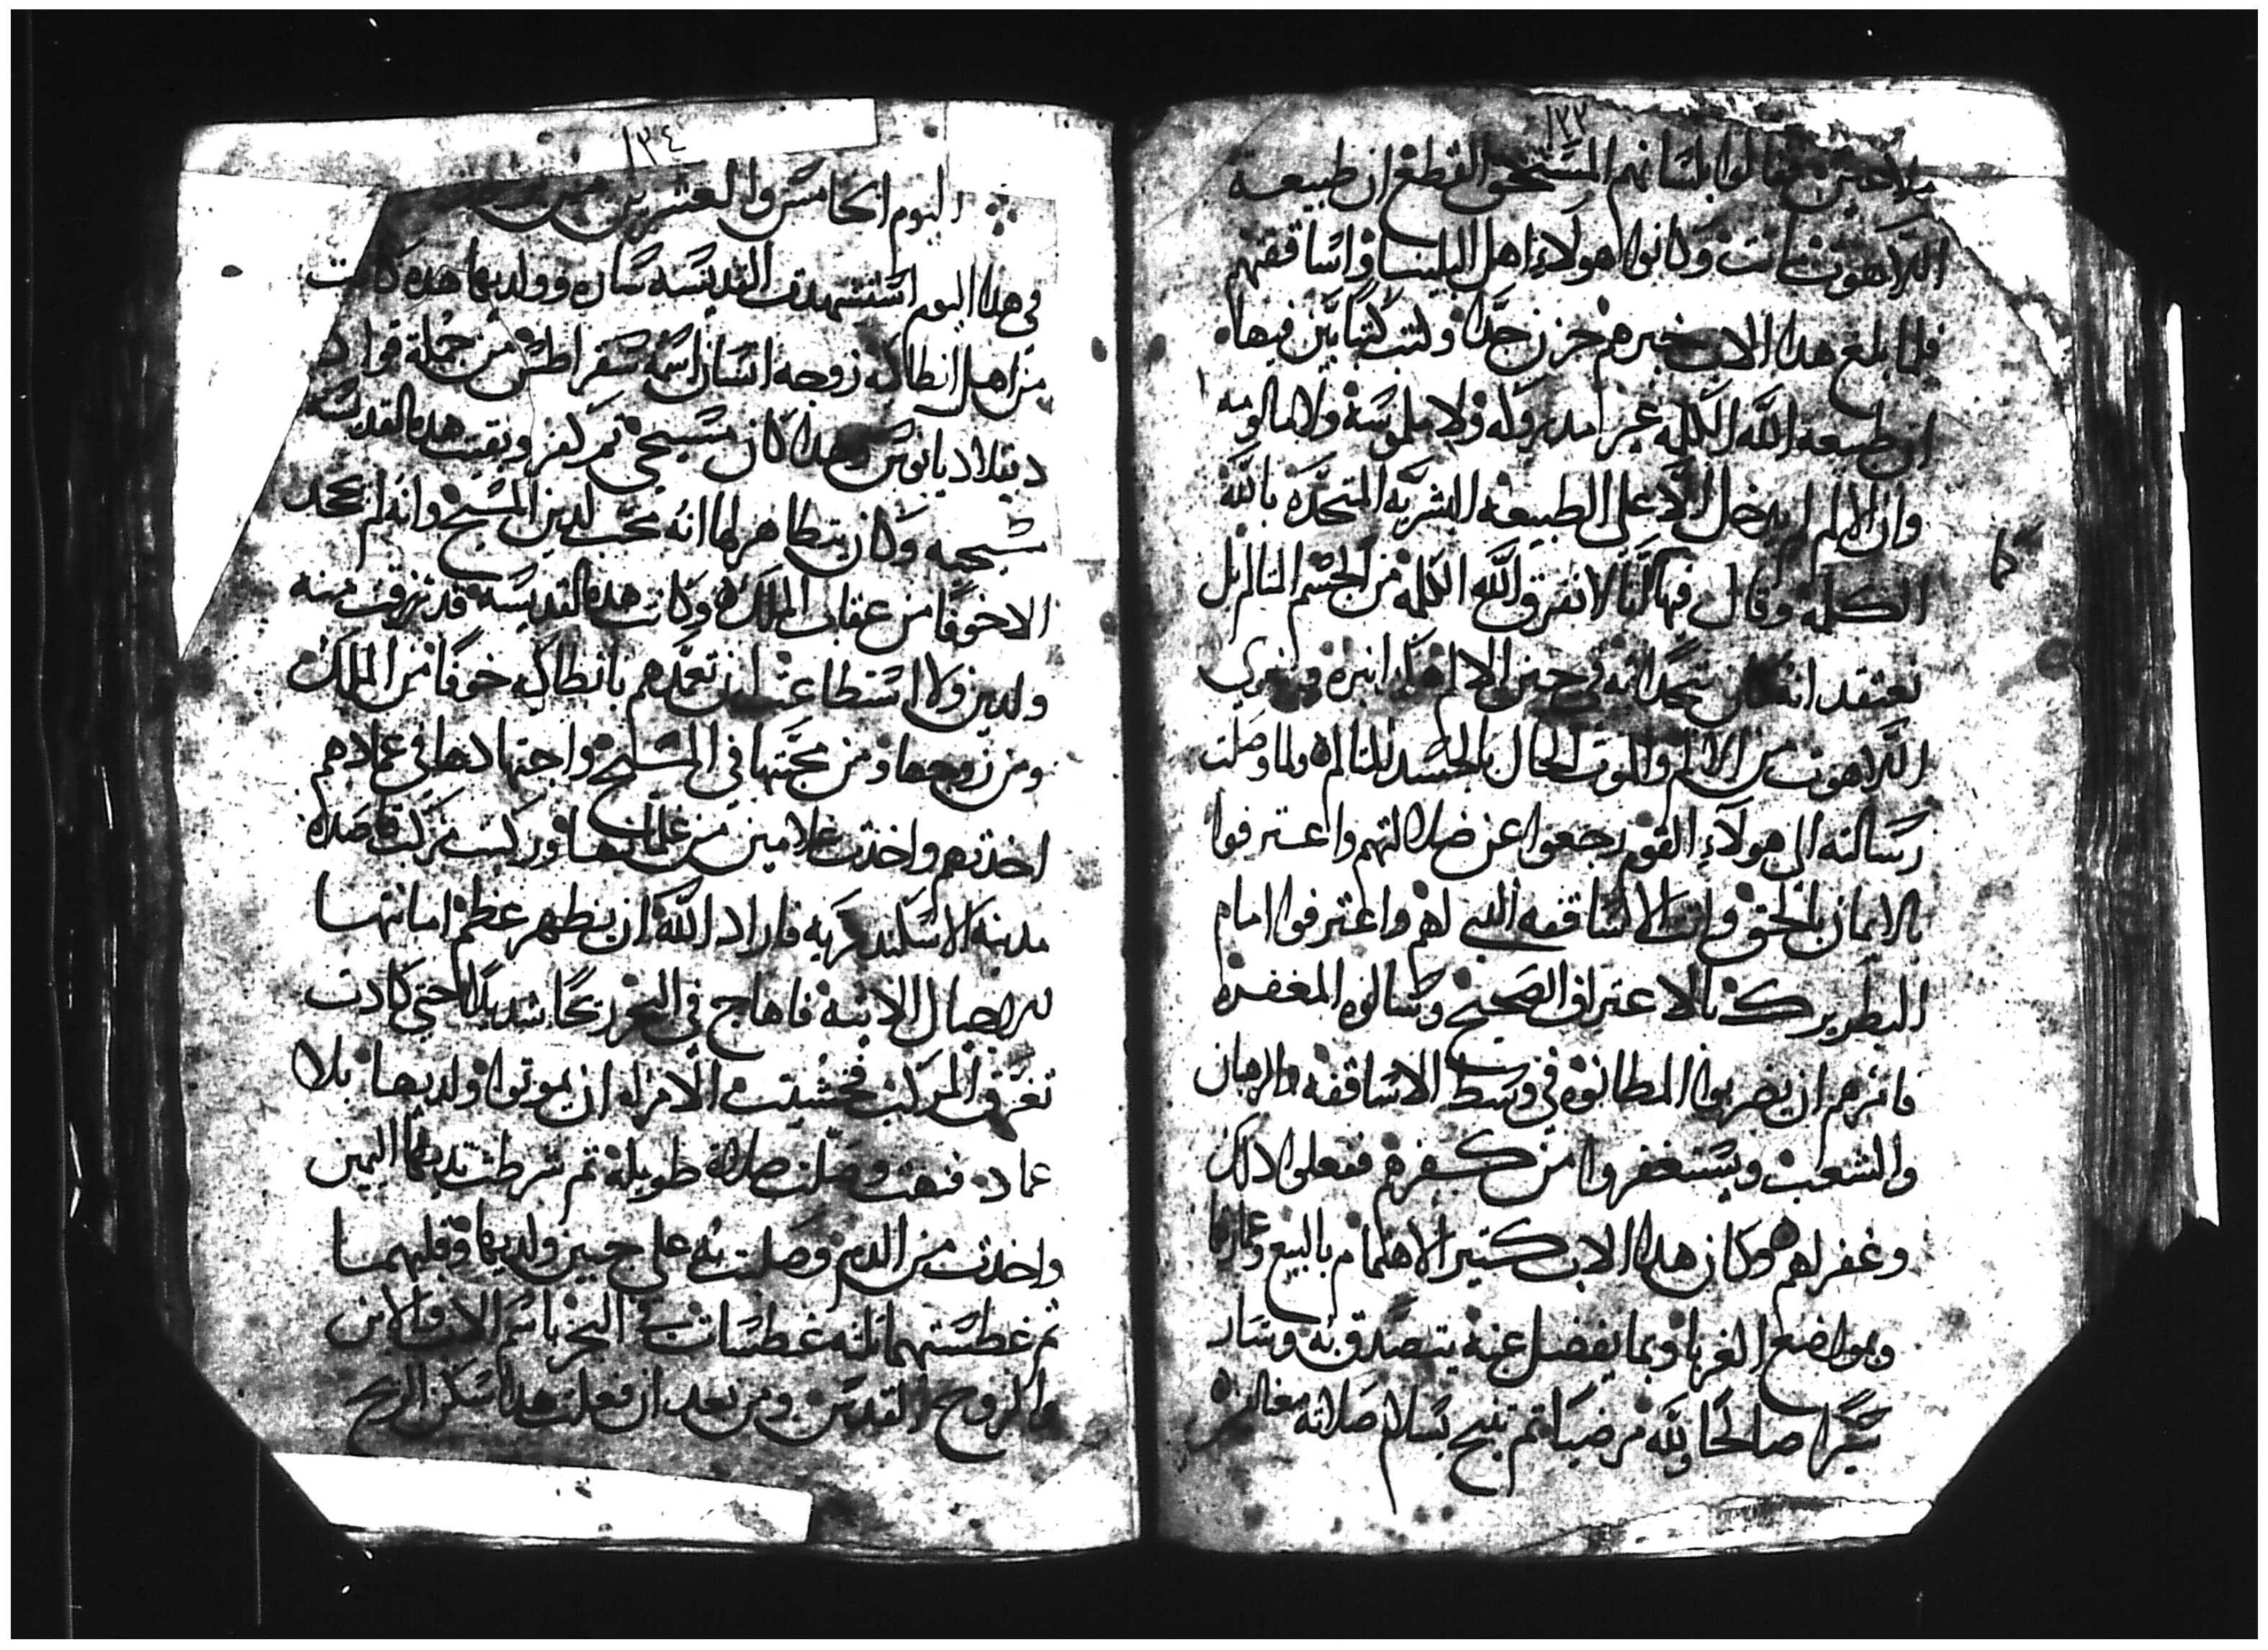 ١٣٣
فقالوا بلسانهم المستحق القطع ان طبيعة
اللاهوت ماتت وكانوا هولاء اهل البلينا واساقفتهم
فلما بلغ هدا الاب خبرهم حزن جدًا وكتب كتابًا يبين فيها
ان طبيعه الله الكلمه غير مدروكه ولا ملموسة ولا مالومه
وان الالم لم يدخل الا على الطبيعه البشريه المتحده بالله
الكلمة وقال فيها اننا لا نفرق الله الكلمة من الجسم المتالم بل
كما
نعتقد انه كان متحدًا به في حين الالام
اللاهوت من الالم والموت الحال بالجسد المتالم ولما وصلت
رسالته الى هولاء القوم رجعوا عن ضلالتهم واعترفوا
بالايمان بالحق واتت الاساقفه التي لهم واعترفوا امام
البطريرك بالاعتراف الصحيح وسالوه المغفره
فامرهم ان يضربوا المطانوه في وسط الاساقفه والرهبان
والشعب ويستغفروا من كفرهم ففعلوا دلك
وغفر لهم وكان هدا الاب كتير الاهتمام بالبيع وعمارتها
وبمواضع الغربا وبما يفضل عنه يتصدق به وسار
سيرًا صالحًا ولله مرضيا تم تنيح بسلام صلاته معنا
١٣٤
اليوم الخامس والعشرين من
في هدا اليوم استشهدت القديسه ساره وولديها هده كانت
من اهل انطاكه زوجه انسان اسمه سقراطس من جملة قواد
دقلاديانوس وهدا كان مسيحي تم كفر وبقيت هده القديسة
مسيحيه وكان يتظاهر لها انه محب لدين المسيح وانه لم يجحد
الا خوفًا من عقاب الملك وكانت هده القديسه قد رزقت منه
ولدين ولا استطاعت ان تعمدهم بانطاكه خوفًا من الملك
ومن زوجها ومن محبتها في المسيح واجتهادها في عمادهم
اخدتهم واخدت غلامين من غلمانها وركبت مركب قاصده
مدينة الاسكندريه فاراد الله ان يظهر عظم امانتها
للاجيال الاتيه فاهاج في البحر ريحًا شديدًا حتى كادت
تغرق المركب فخشيت الامراه ان يموتوا ولديها بلا
عماد فنهضت وصلت صلاة طويلة تم شرطت تديها اليمين
واخدت من الدم وصلبت به على جبين ولديها وقلبهما
تم غطستهما تلته غطسات في البحر باسم الاب والابن
والروح القدس ومن بعد ان فعلت هدا سكن الريح